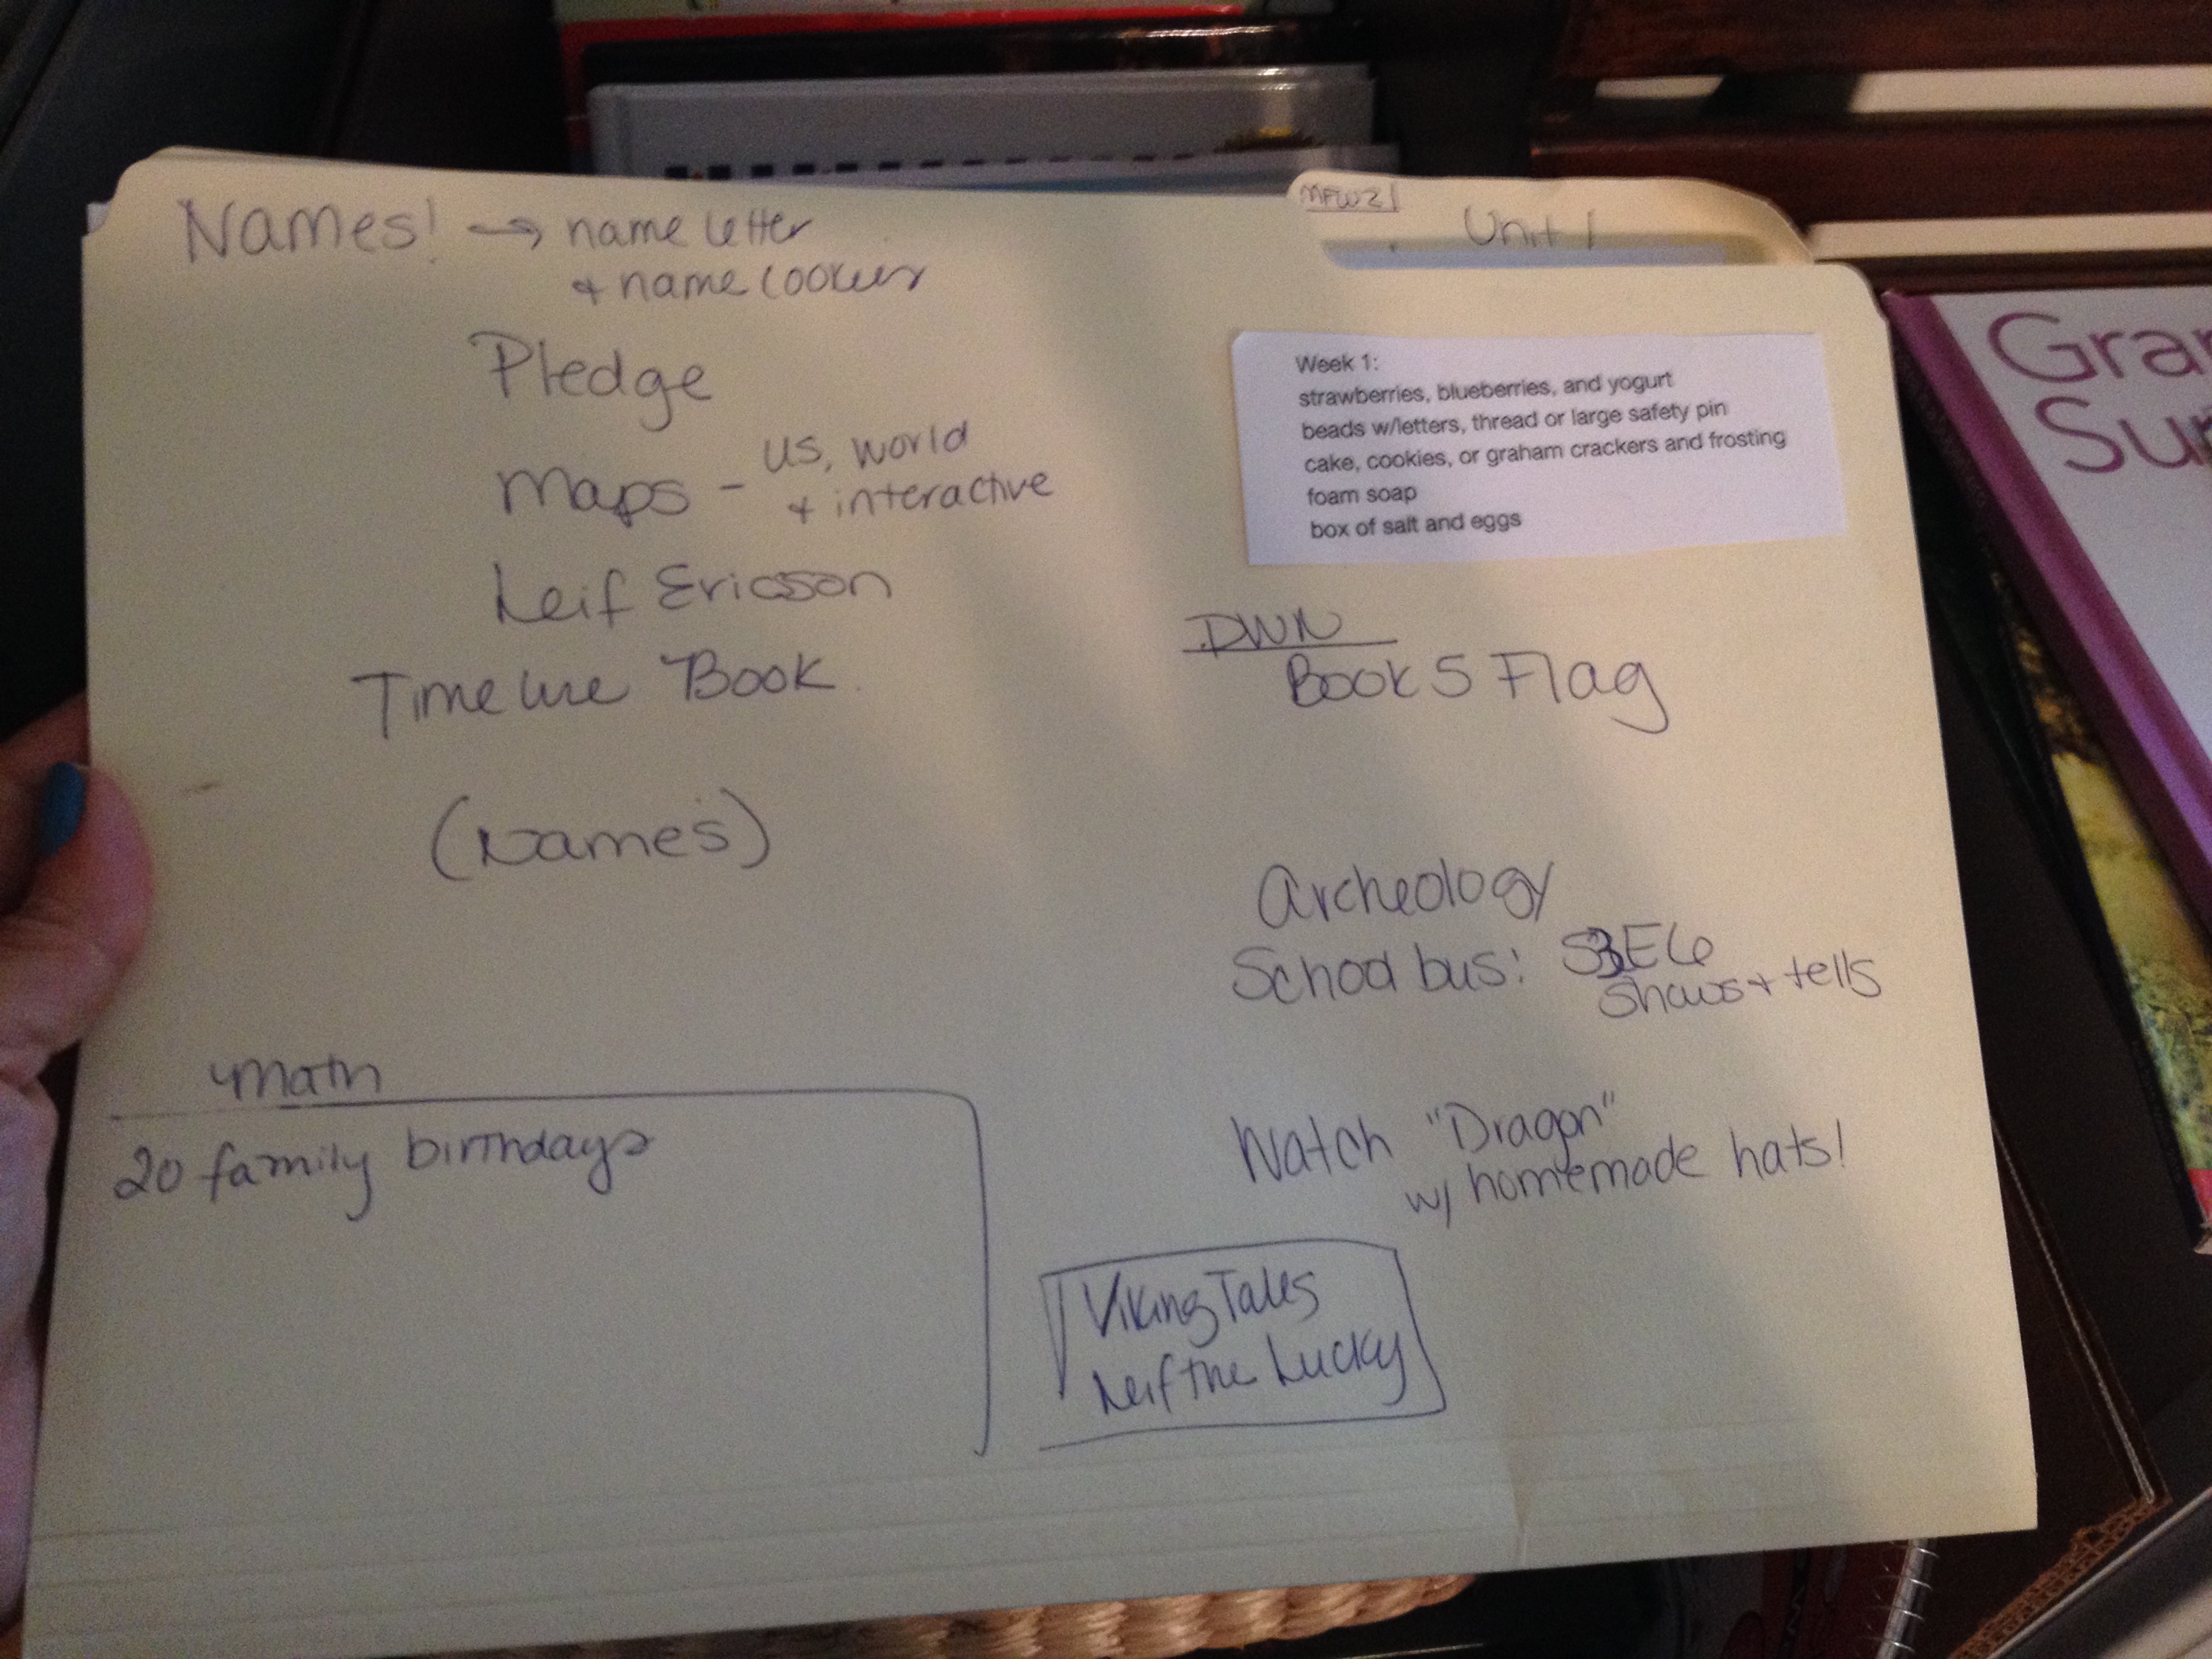 MFW2
Unit 1
Names! → name letter
& name cookies
Pledge
Maps - US, world
& interactive
Leif Ericson
Timeline Book
(Names)
Math
20 family birthdays
Week 1:
strawberries, blueberries, and yogurt
beads w/letters, thread or large safety pin
cake, cookies, or graham crackers and frosting
foam soap
box of salt and eggs
DWN
Book 5 Flag
Archeology
School bus: S3E6
Shows + tells
Watch "Dragon"
w/ homemade hats!
Viking Tales
Leif the Lucky
Gra
Su